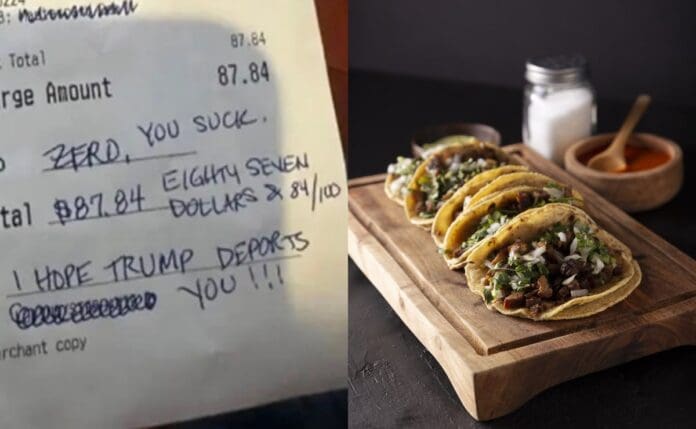 87.84
Total
rge Amount 87.84
ZERO, YOU SUCK.
tal $87.84 EIGHTY SEVEN DOLLARS & 84/100
I HOPE TRUMP DEPORTS
YOU!!!
rchant copy